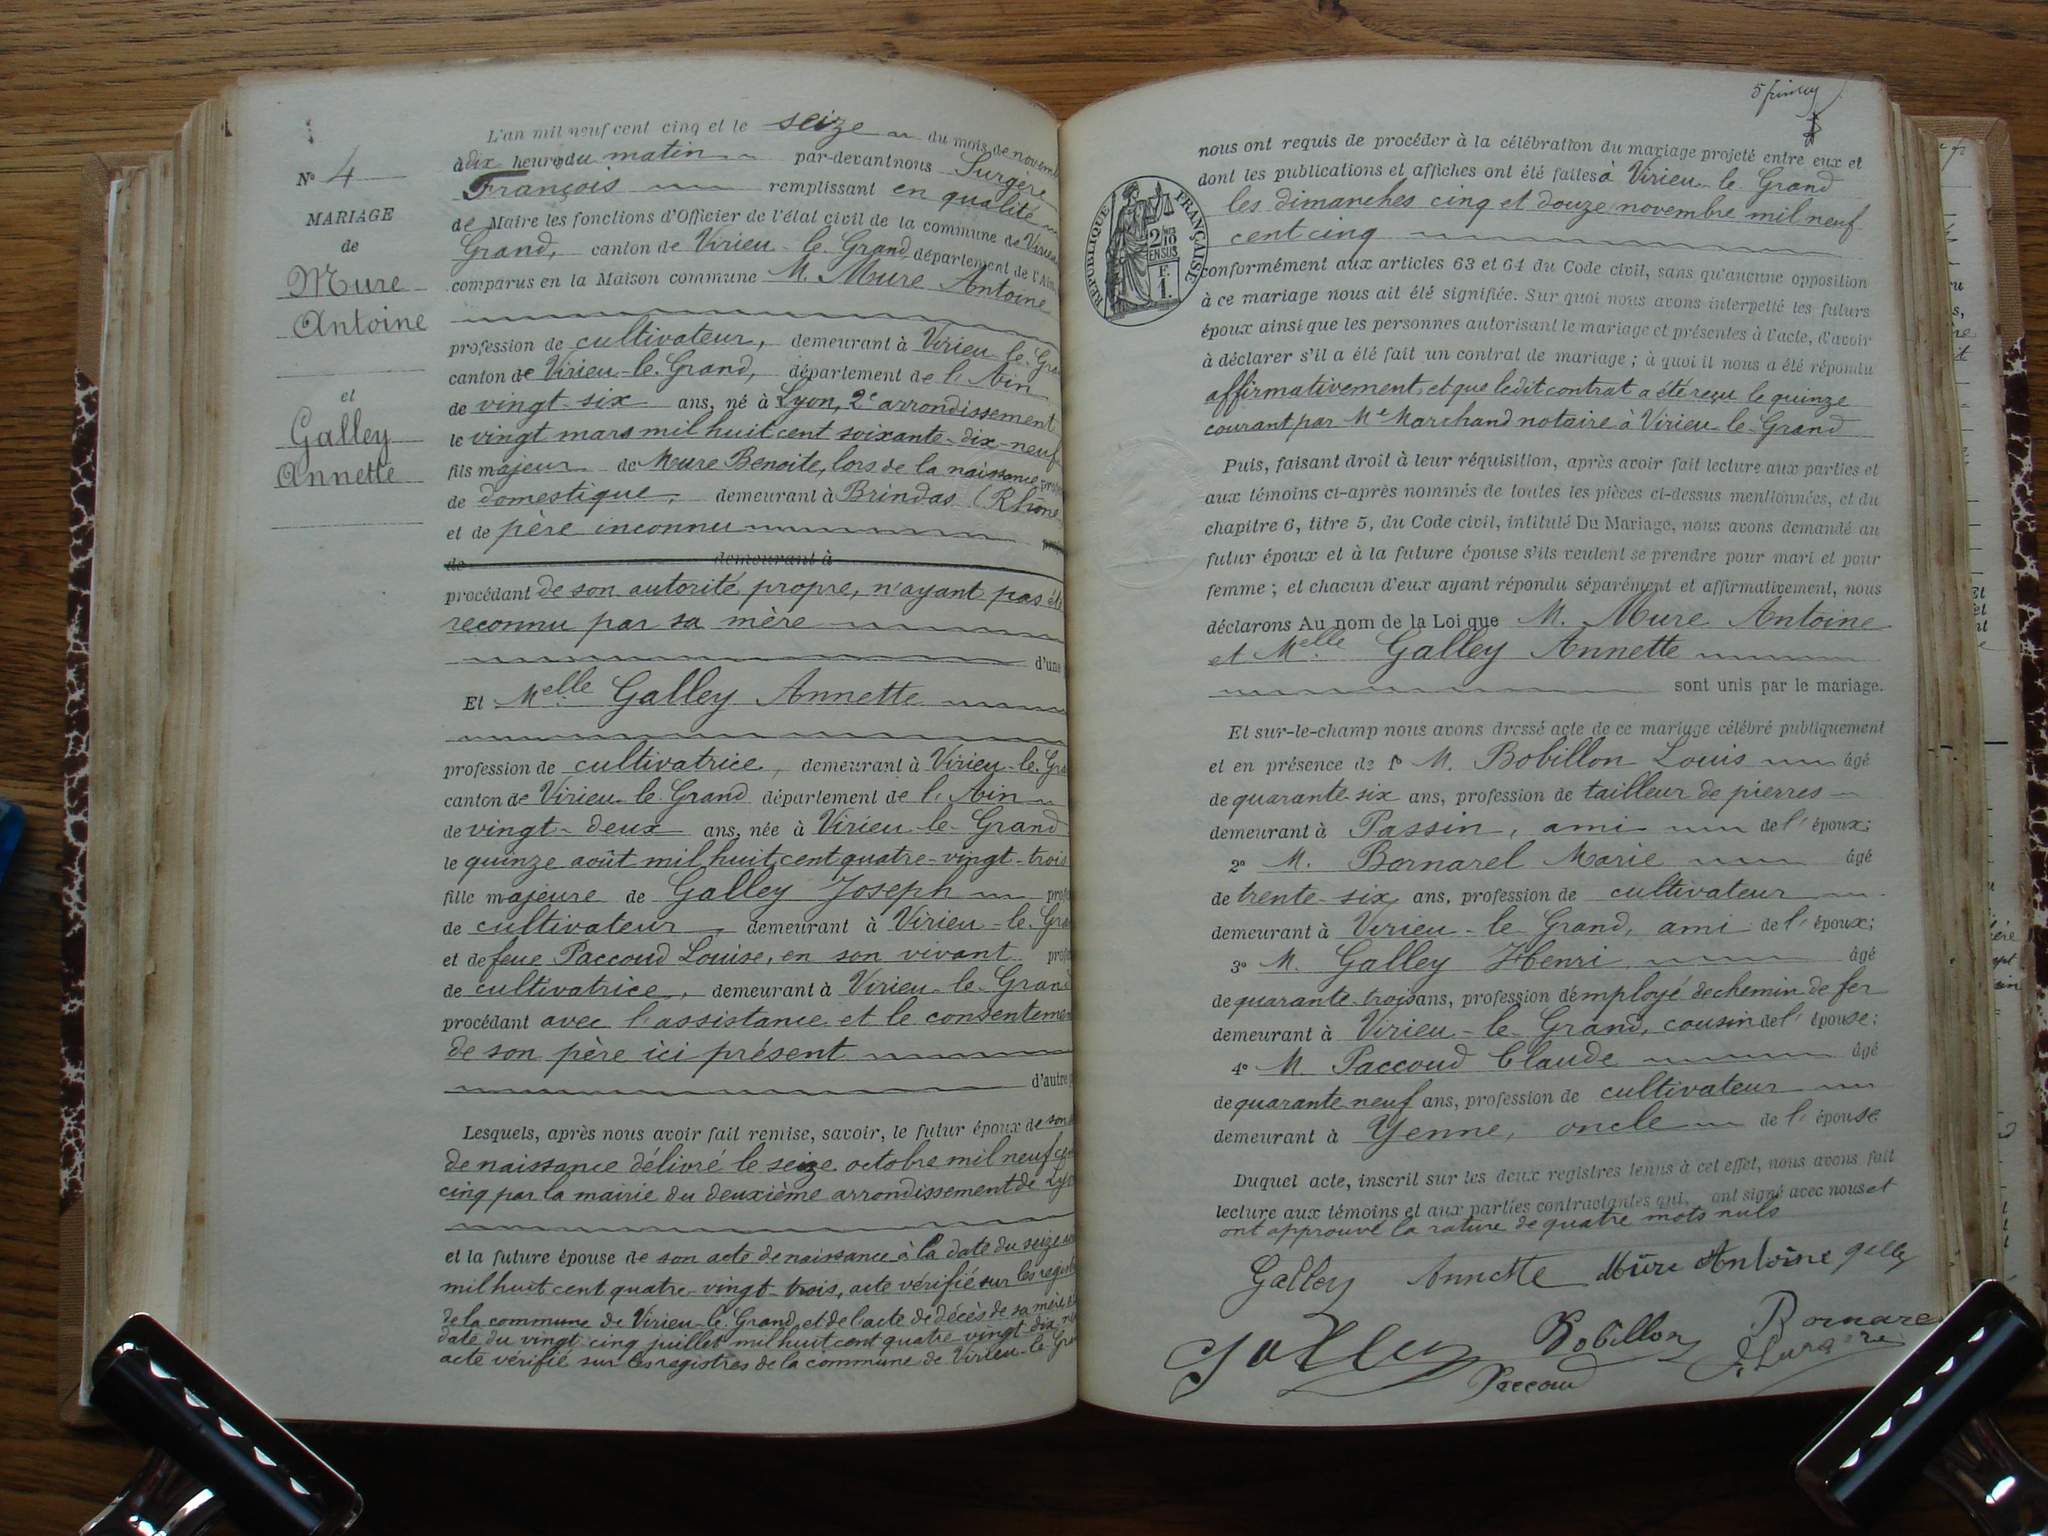 L'an mil neuf cent cinq et le seize du mois de novemb
Nº 4
à dix heures du matin par-devant nous Surgère
François remplissant en qualité
MARIAGE
de Maire les fonctions d'Officier de l'état civil de la commune de Virieu
de
Grand, canton de Virieu-le-Grand, département de l'Ain,
Mure
comparus en la Maison commune M. Mure Antoine
Antoine
profession de cultivateur, demeurant à Virieu-le-Gra
canton de Virieu-le-Grand, département de l'Ain
et
de vingt-six ans, né à Lyon, 2e arrondissement
Galley
le vingt mars mil huit cent soixante-dix-neuf
Annette
fils majeur de Mure Benoite, lors de la naissance, prof
de domestique, demeurant à Brindas (Rhône
et de père inconnu
de demeurant à
procédant de son autorité propre, n'ayant pas été
reconnu par sa mère
d'une
Et Melle Galley Annette
profession de cultivatrice, demeurant à Virieu-le-Gra
canton de Virieu-le-Grand département de l'Ain
de vingt-deux ans, née à Virieu-le-Grand
le quinze août mil huit cent quatre-vingt-trois
fille majeure de Galley Joseph profe
de cultivateur, demeurant à Virieu-le-Gra
et de feue Paccoud Louise, en son vivant profe
de cultivatrice, demeurant à Virieu-le-Grand
procédant avec l'assistance et le consentemen
de son père ici présent
d'autre p
Lesquels, après nous avoir fait remise, savoir, le futur époux de son
de naissance délivré le seize octobre mil neuf cent
cinq par la mairie du deuxième arrondissement de Lyo
et la future épouse de son acte de naissance à la date du seize
mil huit cent quatre-vingt-trois, acte vérifié sur les regist
de la commune de Virieu-le-Grand, et de l'acte de décès de sa mère,
date du vingt-cinq juillet mil huit cent quatre-vingt-dix
acte vérifié sur les registres de la commune de Virieu-le-Gra
nous ont requis de procéder à la célébration du mariage projeté entre eux et
dont les publications et affiches ont été faites à Virieu-le-Grand
les dimanches cinq et douze novembre mil neuf
cent cinq
RÉPUBLIQUE FRANÇAISE
2/10
EN SUS
F.
1.
conformément aux articles 63 et 64 du Code civil, sans qu'aucune opposition
à ce mariage nous ait été signifiée. Sur quoi nous avons interpellé les futurs
époux ainsi que les personnes autorisant le mariage et présentes à l'acte, d'avoir
à déclarer s'il a été fait un contrat de mariage ; à quoi il nous a été répondu
affirmativement, et que ledit contrat a été reçu le quinze
courant par Me Marchand notaire à Virieu-le-Grand
Puis, faisant droit à leur réquisition, après avoir fait lecture aux parties et
aux témoins ci-après nommés de toutes les pièces ci-dessus mentionnées, et du
chapitre 6, titre 5, du Code civil, intitulé Du Mariage, nous avons demandé au
futur époux et à la future épouse s'ils veulent se prendre pour mari et pour
femme ; et chacun d'eux ayant répondu séparément et affirmativement, nous
déclarons Au nom de la Loi que M. Mure Antoine
et Melle Galley Annette
sont unis par le mariage.
Et sur-le-champ nous avons dressé acte de ce mariage célébré publiquement
et en présence de 1º M. Bobillon Louis âgé
de quarante-six ans, profession de tailleur de pierres
demeurant à Passin, ami de l'époux;
2º M. Bornarel Marie âgé
de trente-six ans, profession de cultivateur
demeurant à Virieu-le-Grand, ami de l'époux;
3º M. Galley Henri âgé
de quarante-trois ans, profession d'employé de chemin de fer
demeurant à Virieu-le-Grand, cousin de l'épouse;
4º M. Paccoud Claude âgé
de quarante-neuf ans, profession de cultivateur
demeurant à Yenne, oncle de l'épouse
Duquel acte, inscrit sur les deux registres tenus à cet effet, nous avons fait
lecture aux témoins et aux parties contractantes qui ont signé avec nous et
ont approuvé la rature de quatre mots nuls
Galley Annette Mure Antoine galley
Galley Bobillon Bornarel
Paccoud Surgère